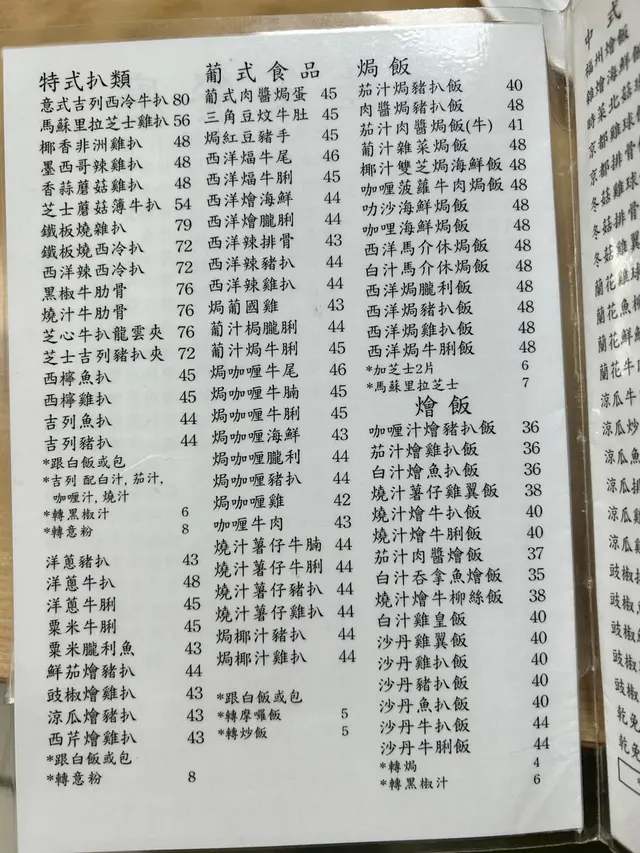 特式扒類
意式吉列西冷牛扒 80
馬蘇里拉芝士雞扒 56
椰香非洲雞扒 48
墨西哥辣雞扒 48
香蒜蘑菇雞扒 48
芝士蘑菇薄牛扒 54
鐵板燒雜扒 79
鐵板燒西冷扒 72
西洋辣西冷扒 72
黑椒牛肋骨 76
燒汁牛肋骨 76
芝心牛扒龍雲夾 76
芝士吉列豬扒夾 72
西檸魚扒 45
西檸雞扒 45
吉列魚扒 44
吉列豬扒 44
*跟白飯或包
*吉列 配白汁, 茄汁,
咖喱汁, 燒汁
*轉黑椒汁 6
*轉意粉 8
洋蔥豬扒 43
洋蔥牛扒 48
洋蔥牛脷 45
粟米牛脷 45
粟米龐利魚 43
鮮茄燴豬扒 44
豉椒燴雞扒 43
涼瓜燴豬扒 43
西芹燴雞扒 43
*跟白飯或包
*轉意粉 8
葡式食品
葡式肉醬焗蛋 45
三角豆炆牛肚 45
焗紅豆豬手 45
西洋煏牛尾 46
西洋煏牛脷 45
西洋燴海鮮 44
西洋燴龐脷 44
西洋辣排骨 43
西洋辣豬扒 44
西洋辣雞扒 44
焗葡國雞 43
葡汁梮龐脷 44
葡汁焗牛脷 45
焗咖喱牛尾 46
焗咖喱牛腩 45
焗咖喱牛脷 45
焗咖喱海鮮 43
焗咖喱龐利 44
焗咖喱豬扒 44
焗咖喱雞 42
咖喱牛肉 43
燒汁薯仔牛腩 44
燒汁薯仔牛脷 44
燒汁薯仔豬扒 44
燒汁薯仔雞扒 44
焗椰汁豬扒 44
焗椰汁雞扒 44
*跟白飯或包
*轉摩囉飯 5
*轉炒飯 5
焗飯
茄汁焗豬扒飯 40
肉醬焗豬扒飯 48
茄汁肉醬焗飯(牛) 41
葡汁雜菜焗飯 48
椰汁雙芝焗海鮮飯 48
咖喱菠蘿牛肉焗飯 48
叻沙海鮮焗飯 48
咖喱海鮮焗飯 48
西洋馬介休焗飯 48
白汁馬介休焗飯 48
西洋焗龐利飯 48
西洋焗豬扒飯 48
西洋焗雞扒飯 48
西洋焗牛脷飯 48
*加芝士2片 6
*馬蘇里拉芝士 7
燴飯
咖喱汁燴豬扒飯 36
茄汁燴雞扒飯 36
白汁燴魚扒飯 36
燒汁薯仔雞翼飯 38
燒汁燴牛扒飯 40
燒汁燴牛脷飯 40
茄汁肉醬燴飯 37
白汁吞拿魚燴飯 35
燒汁燴牛柳絲飯 38
白汁雞皇飯 40
沙丹雞翼飯 40
沙丹雞扒飯 40
沙丹豬扒飯 40
沙丹魚扒飯 40
沙丹牛扒飯 44
沙丹牛脷飯 44
*轉焗 4
*轉黑椒汁 6
中式
福州燴飯
雜燴海鮮飯
時菜北菇
京都雞球
京都排骨
冬菇雞球
冬菇排骨
冬菇雞翼
蘭花雞球
蘭花魚
蘭花鮮
蘭花牛
涼瓜牛
涼瓜炒
涼瓜魚
涼瓜排
涼瓜雞
豉椒
豉椒
豉椒
豉椒
豉椒
乾免
乾免